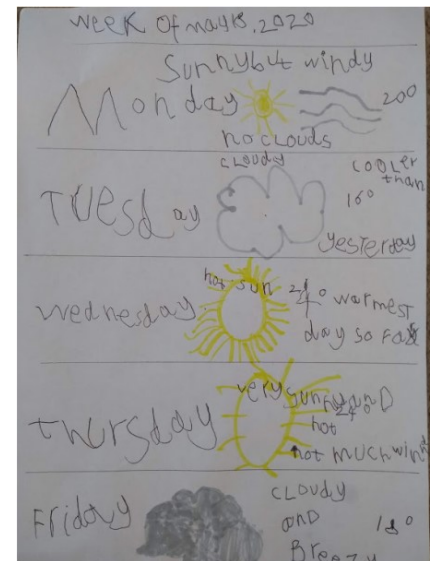 Week of may 18, 2020
Sunny but windy
Monday
20°
no clouds
cloudy
Tuesday
cooler than
16°
yesterday
Wednesday
hot sun
24° warmest
day so far
Thursday
very sunny and
24°
hot
not much wind
Friday
cloudy
and
Breezy
18°